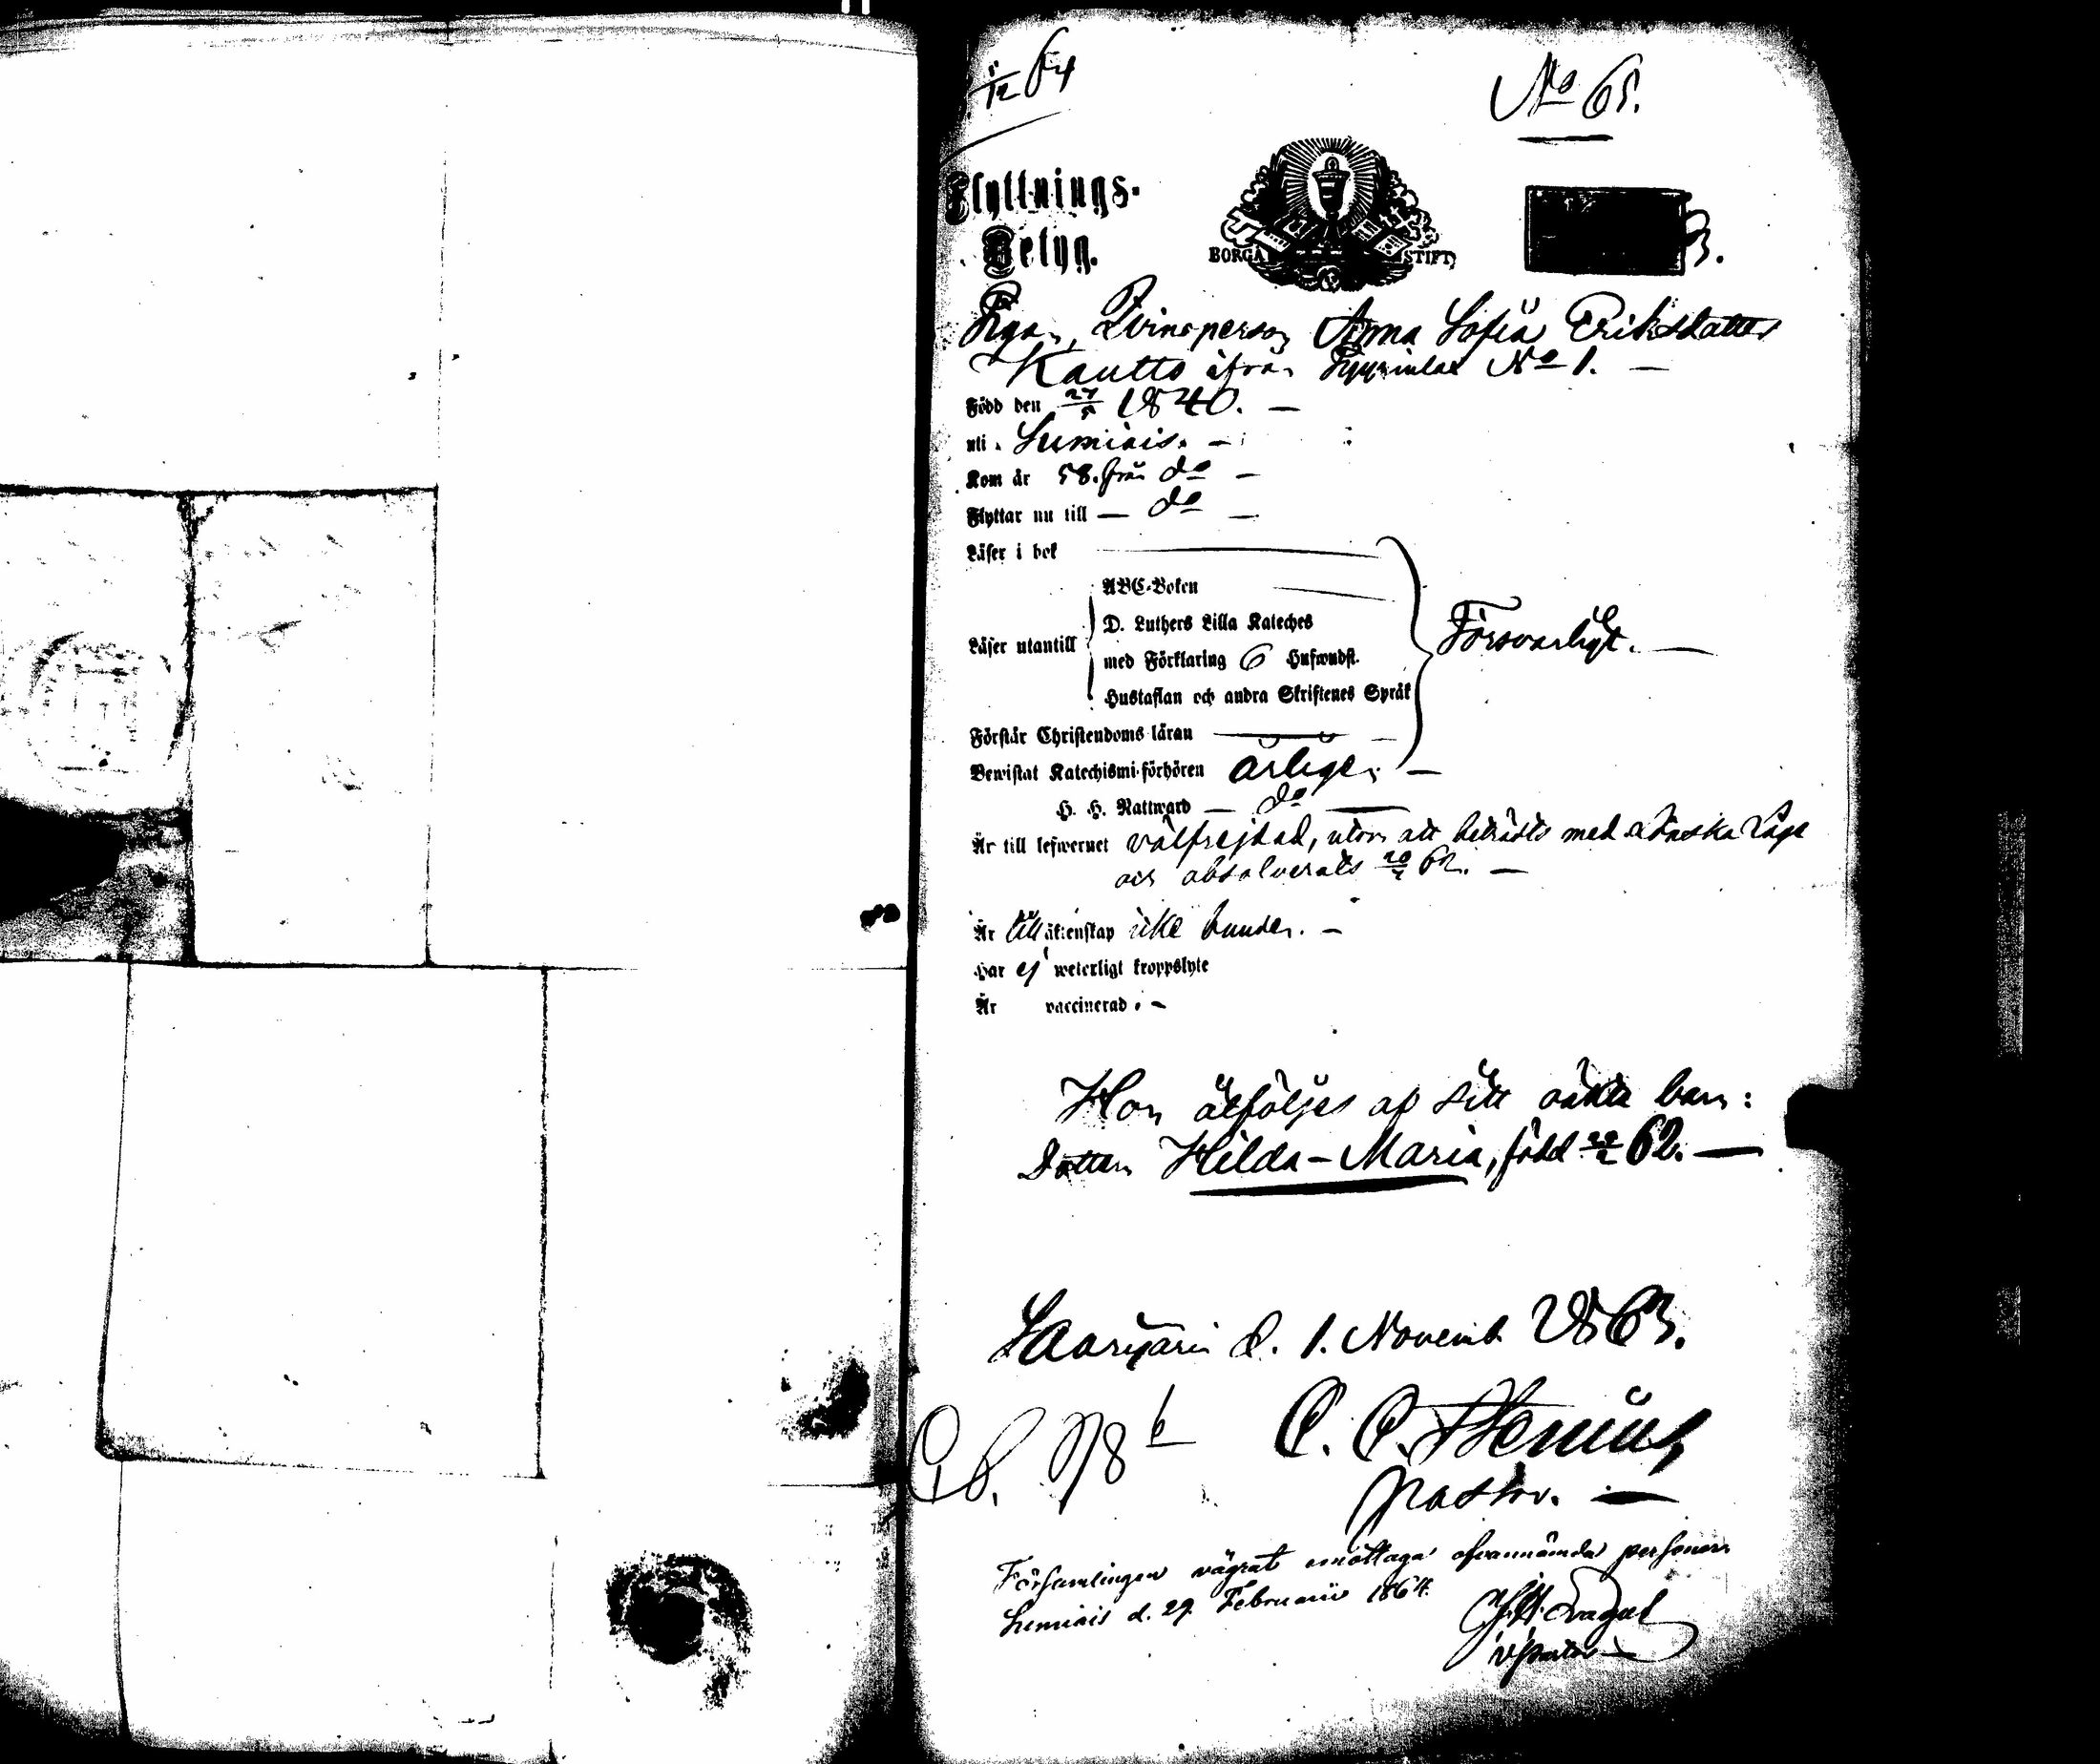 5/12 64
No 65.
Flyttnings-
Betyg.
BORGÅ STIFT
3.
Pigan, Qvinsperson Anna Sofia Eriksdotter
Kautto ifrån No 1. —
Född den 27/5 1840. —
uti Sumiais. —
Kom år 58. från do —
Flyttar nu till — do —
Läser i bok
ABC-Boken
D. Luthers Lilla Kateches
Läser utantill
med Förklaring 6 Hufwudst.
Hustaflan och andra Skriftenes Språk
Försvarligt. —
Förstår Christendoms läran
Bewistat Katechismi-förhören årlige. —
H. H. Nattward — do —
Är till lefwernet välfrejdad, utom att beträdts med lönska läge
och absolverats 62. —
Är till äktenskap icke bunden. —
Har ej weterligt kroppslyte
Är vaccinerad. —
Hon åtföljes af sitt oäkta barn:
Dottern Hilda-Maria, född 22/2 62. —
Saarijärvi d. 1. Novemb. 1863.
C. C.
Pastor. —
98 b
Församlingen vägrat emottaga ofvannämnda personer
Sumiais d. 29 Februarii 1864.
v Pastor —